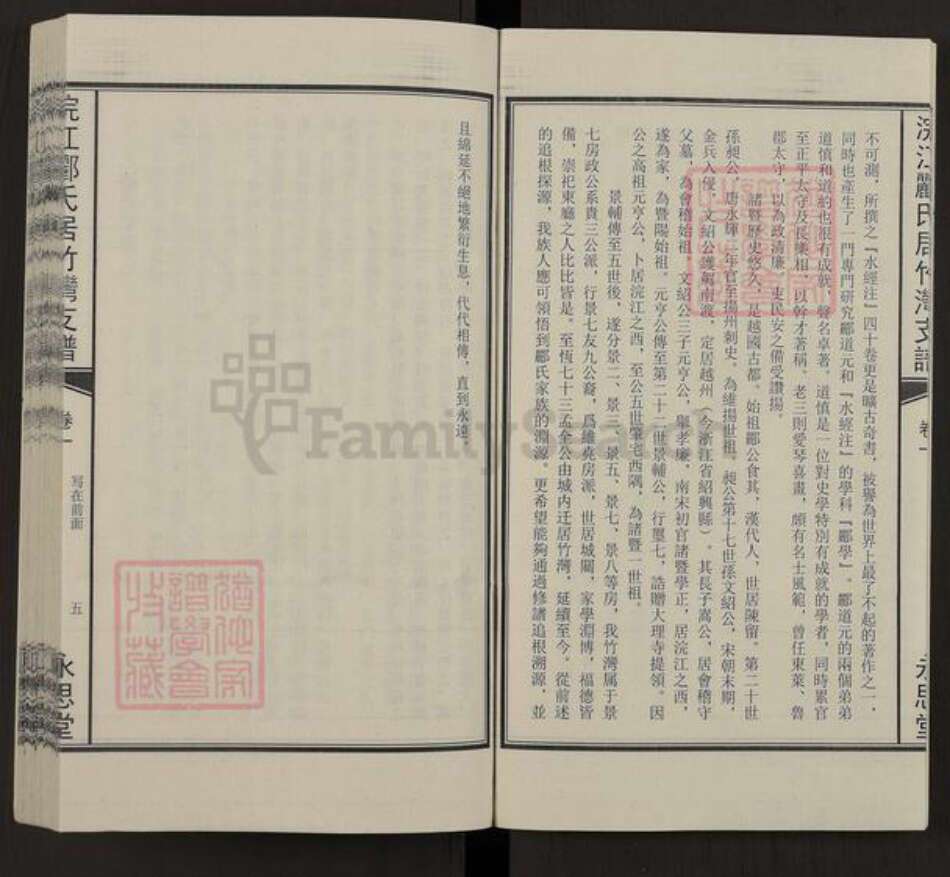 浣江酈氏居竹灣支譜
卷一
永思堂
不可測，所撰之『水經注』四十卷更是曠古奇書，被譽為世界上最了不起的著作之一，
同時也產生了一門專門研究酈道元和『水經注』的學科『酈學』。酈道元的兩個弟弟
道慎和道約也很有成就，聲名卓著。道慎是一位對史學特別有成就的學者，同時累官
至正平太守及長樂相，以幹才著稱。老三則愛琴喜畫，頗有名士風範，曾任東萊、魯
郡太守，以為政清廉、吏民安之備受讚揚。
諸暨歷史悠久，是越國古都。始祖酈公食其，漢代人，世居陳留。第二十世
孫昶公，唐永輝三年官至揚州刺史，為維揚世祖。昶公第十七世孫文紹公，宋朝末期，
金兵入侵，文紹公護駕南渡，定居越州（今浙江省紹興縣）。其長子嵩公，居會稽守
父墓，為會稽始祖。文紹公三子元亨公，舉孝廉，南宋初官諸暨學正，居浣江之西，
遂為家，為暨陽始祖。元亨公傳至第二十二世景輔公，行璽七，誥贈大理寺提領。因
公之高祖元亨公，卜居浣江之西，至公五世肇宅西隅，為諸暨一世祖。
景輔傳至五世後，遂分景二、景三、景五、景七、景八等房，我竹灣属于景
七房政公系貴三公派，行景七友九公裔，爲維堯房派，世居城關，家學淵博，福德皆
備，崇祀東廳之人比比皆是。至恆七十三孟全公由城内迁居竹灣，延續至今。從前述
的追根探源，我族人應可領悟到酈氏家族的淵源。更希望能夠通過修譜追根溯源，並
且綿延不絕地繁衍生息，代代相傳，直到永遠。
浣江酈氏居竹灣支譜
卷一
写在前面
五
永思堂
FamilySearch